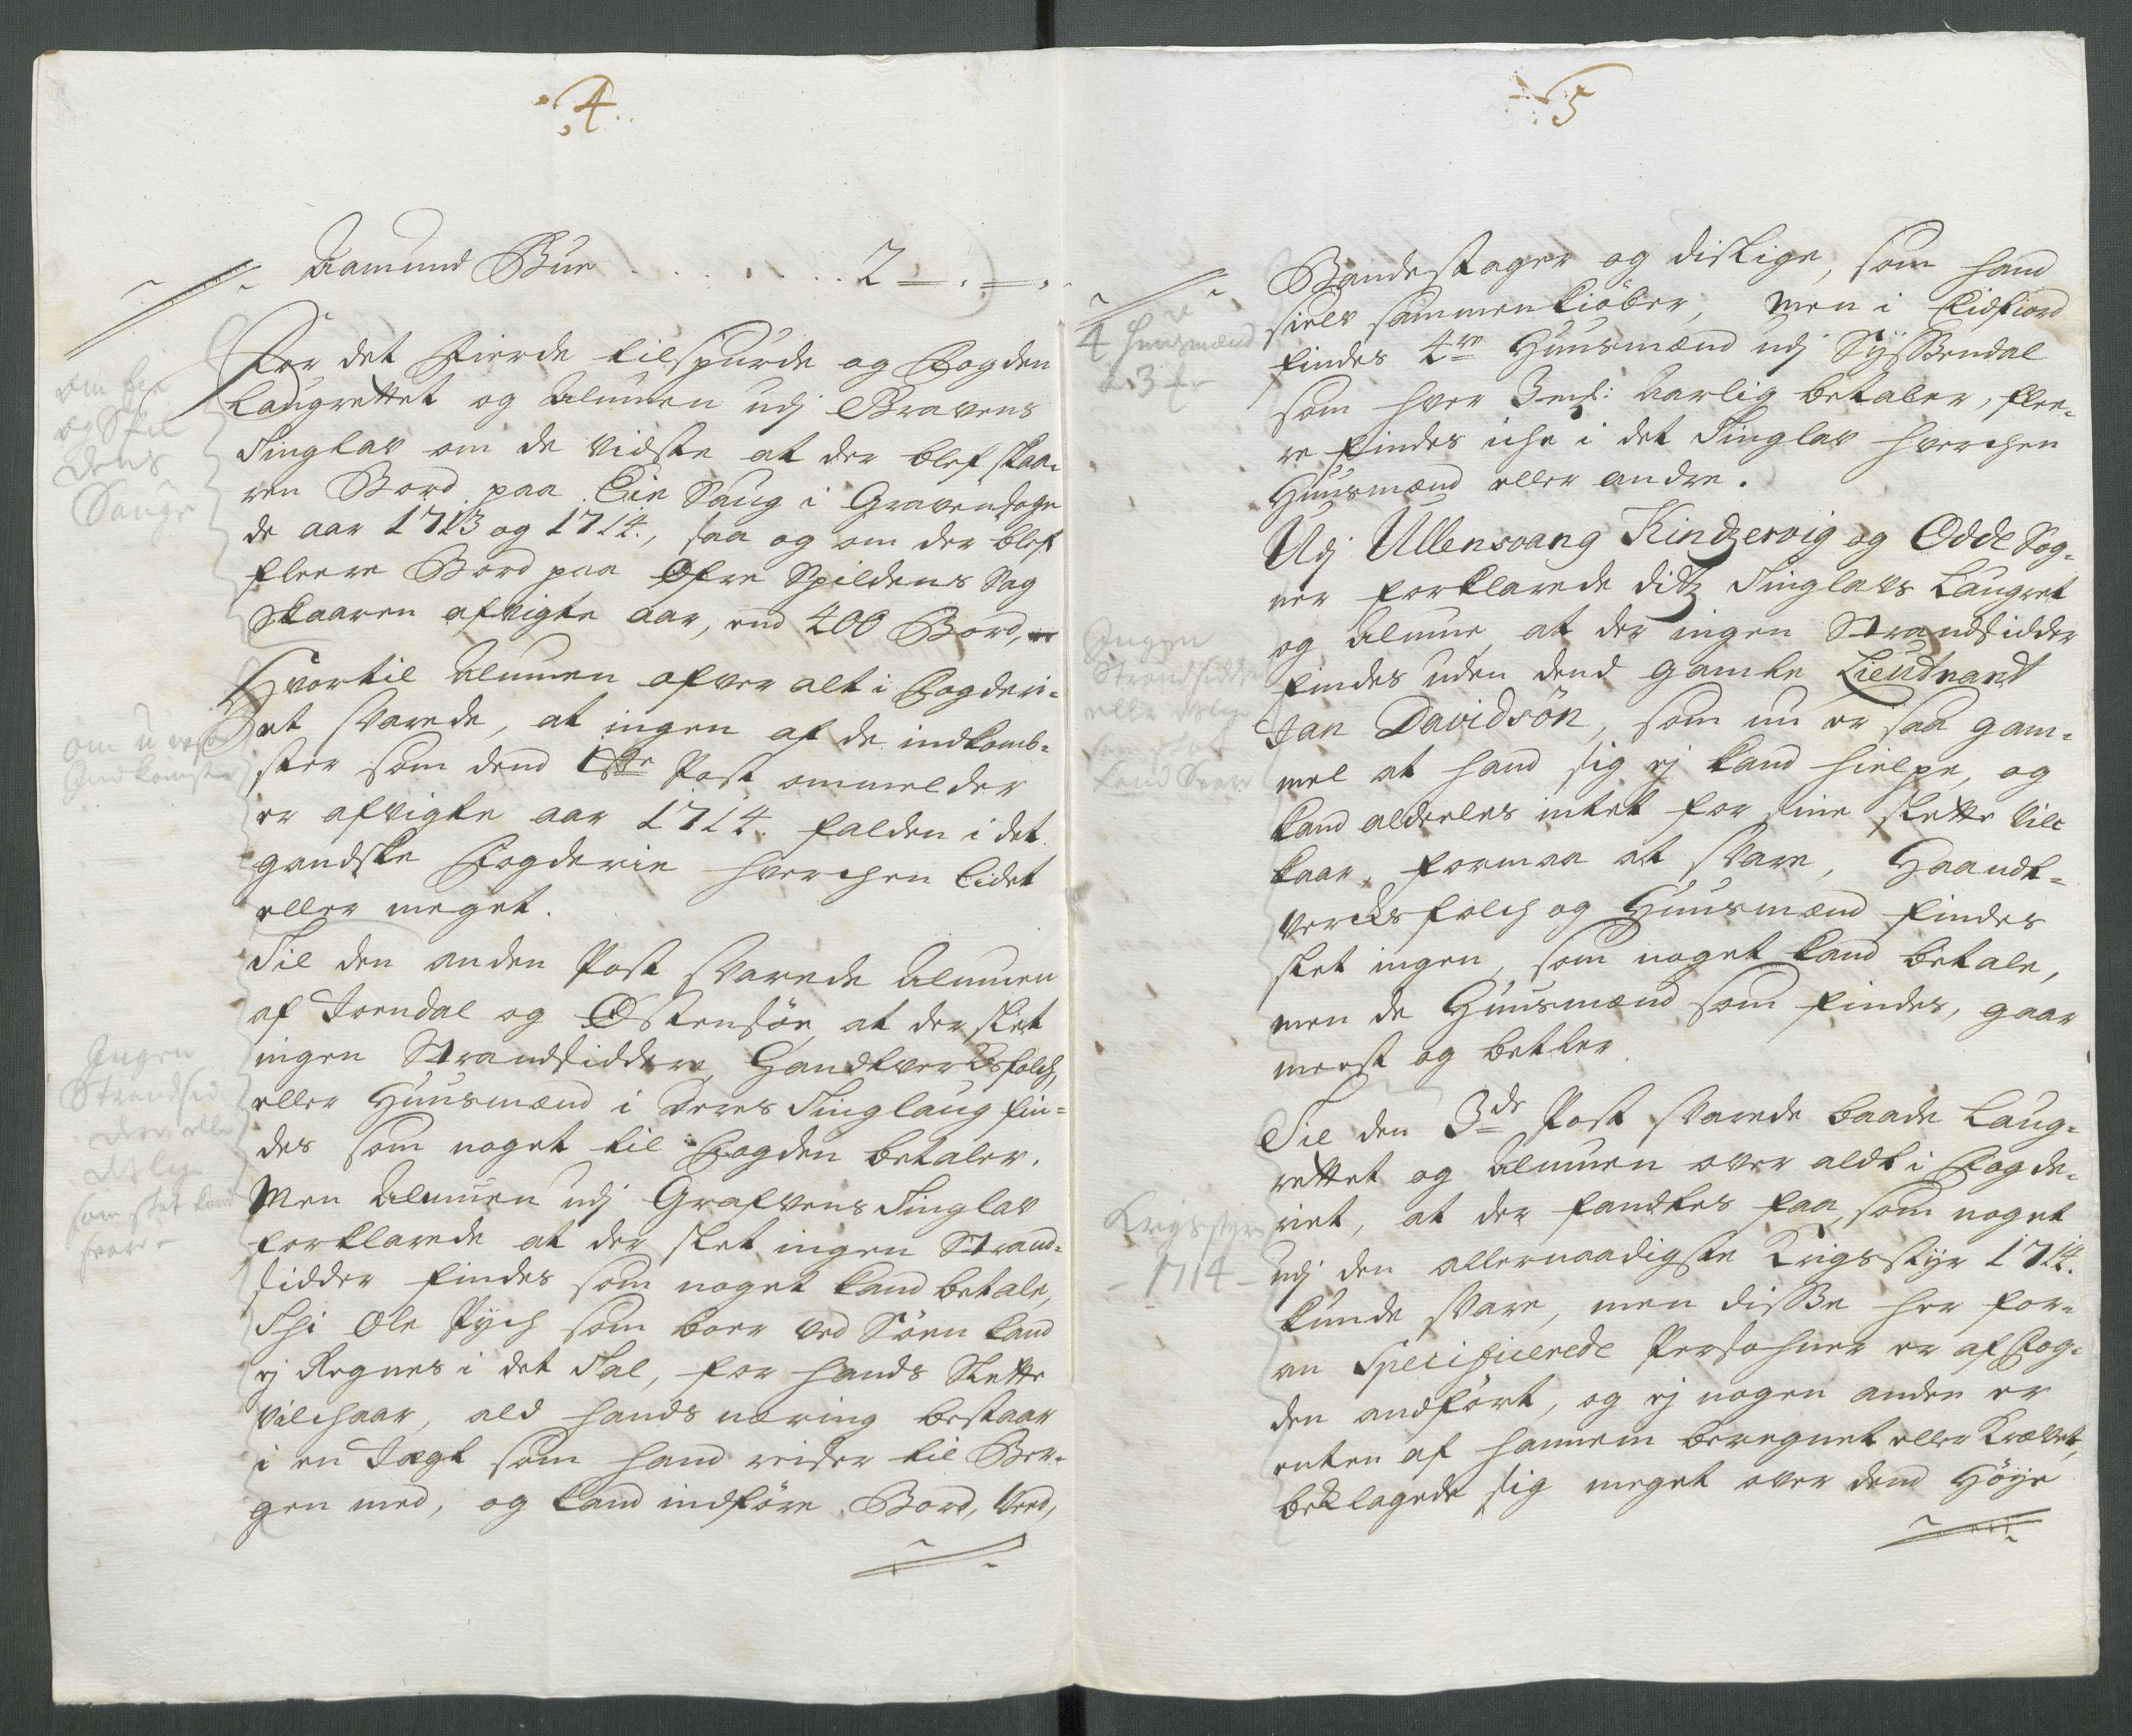 4.
Aamund Bue . . . . . . . 2 – . – .
For det Fierde tilspurde og Fogden
Laugrettet og Almuen udj Gravens
Tinglav om de vidste at der blef skaa-
ren Bord paa Eie Saug i Gravens sogn
de aar 1713 og 1714., saa og om der blef
fleere Bord paa Øfre Spildens Sag
skaaren afvigte aar, end 400 Bord,
Hvortil Almuen ofver alt i Fogderi-
et svarede, at ingen af de indkomb-
ster som dend 1ste Post ommelder
er afvigte aar 1714. falden i det
gandske Fogderie hverchen lidet
eller meget.
Til den anden Post svarede Almuen
af Jondal og Østensøe, at der slet
ingen Strandsiddere, Handtvercksfolch,
eller Huusmænd i deres Tinglaug fin-
des som noget til Fogden betaler.
Men Almuen udj Grafvens Tinglav
forklarede at der slet ingen Strand-
sidder findes som noget kand betale,
Thi Ole Pÿch som boer ved Søen kand
ej Regnes i det Tal, for hands Slette
vilchaar, ald hands næring bestaar
i en Jægt som hand reiser til Ber-
gen med, og kand indføre Bord, Veed,
om Eie
og Spil
dens
Sauge
om u visse
Indkomster
Ingen
Strandsid
der eller
desl:
som slet kand
svare –
5
Bandestager og disslige, som hand
sielv sammenkiøber, men i Eidfiord
findes 4re Huusmænd udj Sÿssendal
som hver 3 mk: aarlig betaler, flee-
re findes iche i det Tinglav hverchen
Huusmænd eller andre.
Udj Ullensvang Kindzervig og Odde Sog-
ner forklarede ditz Tinglavs Laugret
og Almue, at der ingen Strandsidder
findes uden dend gamle Lieutnant
Jan Davidsøn, som nu er saa gam-
mel at hand sig ej kand hielpe, og
kand alderles intet for sine slette vil
kaar formaa at svare, Haandt-
vercksfolch og Huusmænd findes
slet ingen, som noget kand betale,
men de Huusmænd som findes, gaar
meest og betler.
Til den 3de Post svarede baade Laug-
rettet og Almuen over aldt i Fogde-
riet, at der fandtes faa, som noget
udj den allernaadigste Krigsstÿr 1714.
kunde svare, men disse her for-
an Specificerede Persohner er af Fog-
den andført, og ej nogen anden er
enten af hannem beregnet eller Krævet,
beklagede sig meget over dend Høÿe
4 Huusmænd
a 3 
Ingen
Strandsidder
eller 
som slet
kand Svare
Krigsstyr
– 1714 –